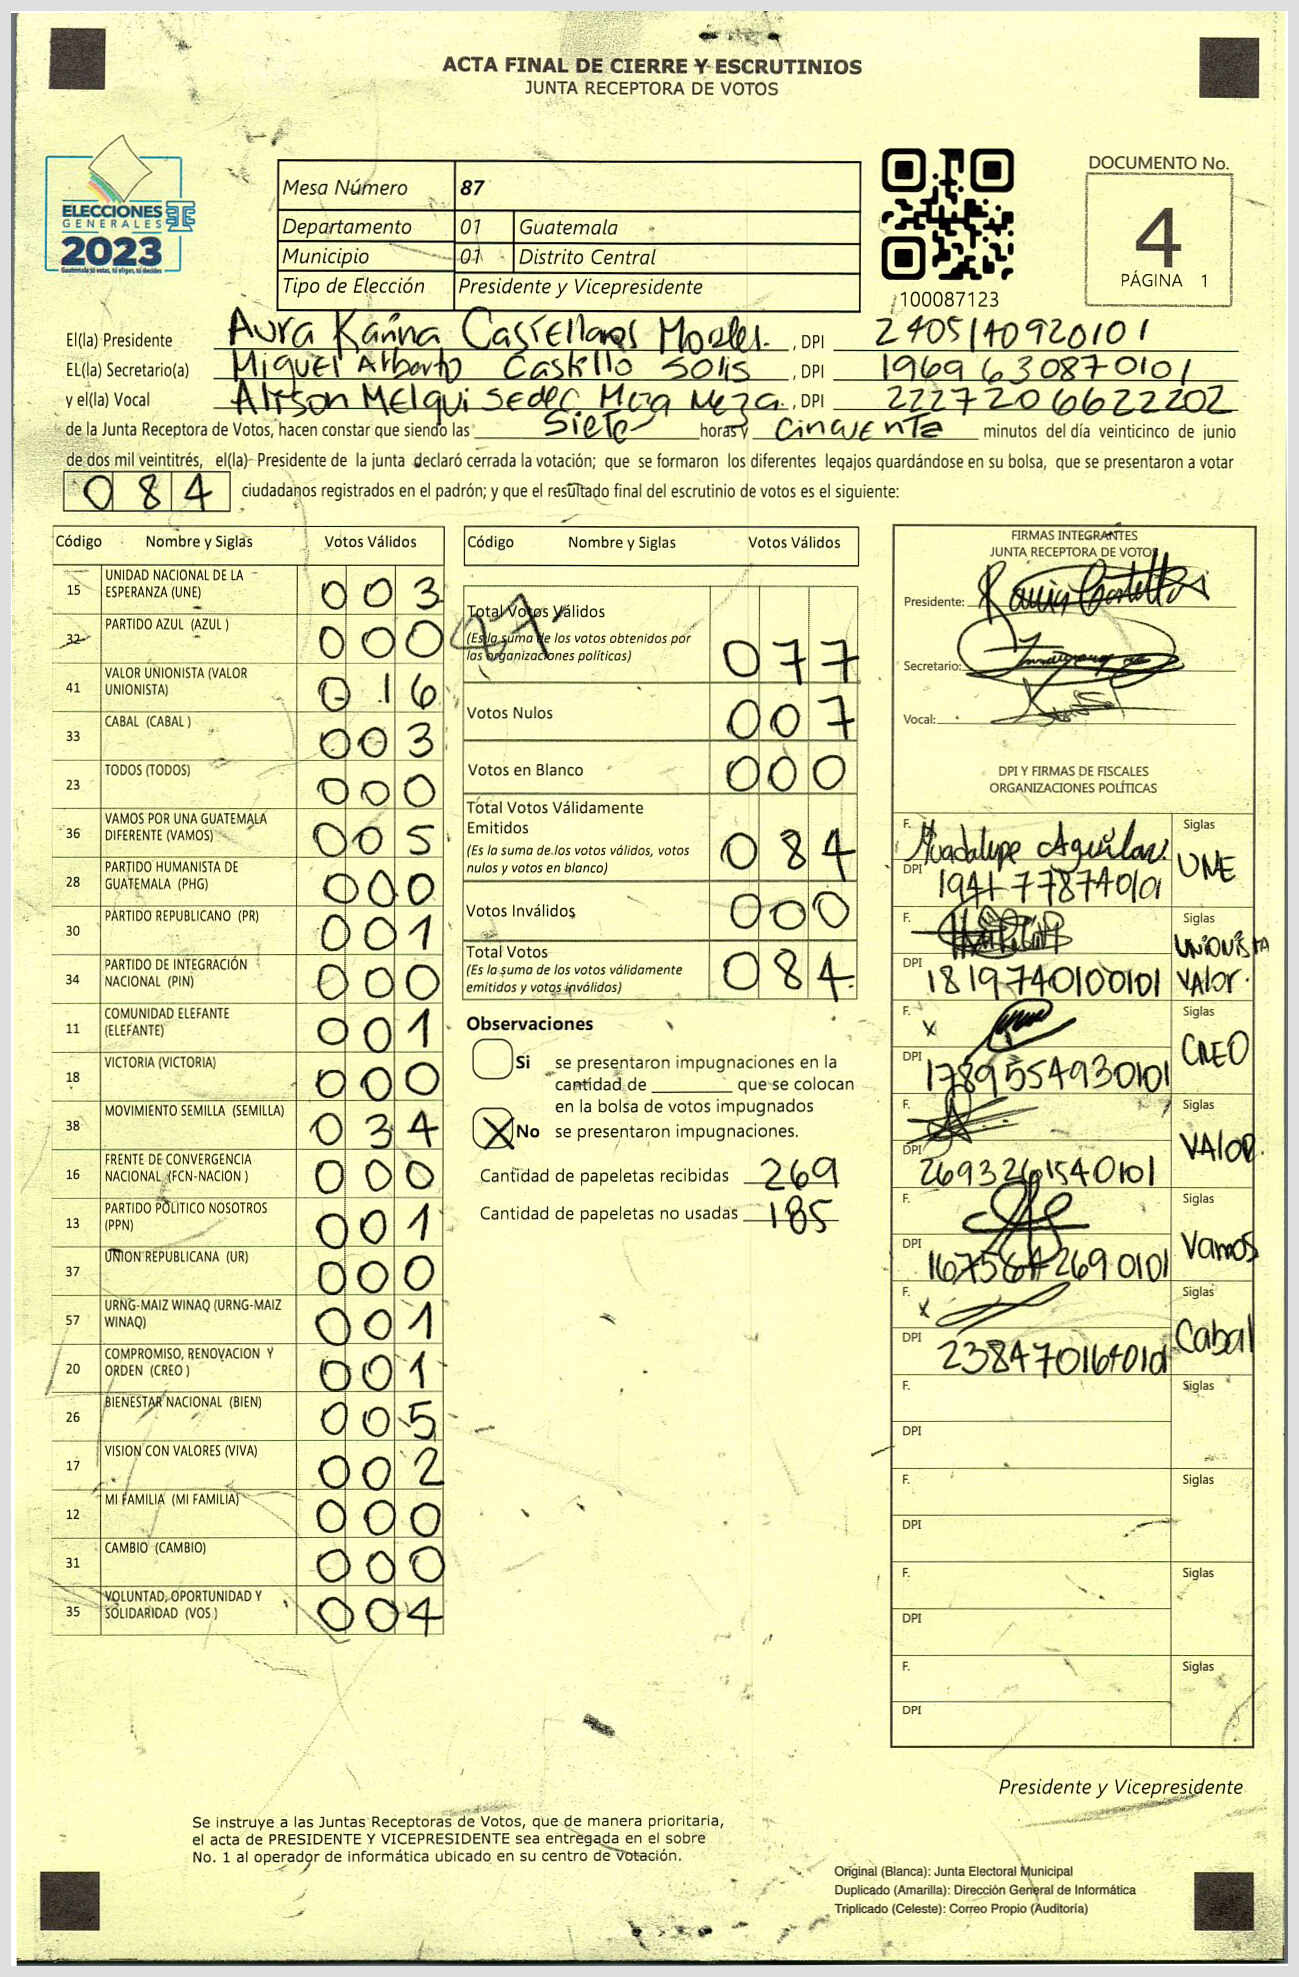 ACTA FINAL DE CIERRE Y ESCRUTINIOS
JUNTA RECEPTORA DE VOTOS
ELECCIONES
GENERALES
2023
Guatemala tú votas, tú eliges, tú decides
Mesa Número 87
Departamento 01 Guatemala
Municipio 01 Distrito Central
Tipo de Elección Presidente y Vicepresidente
100087123
DOCUMENTO No.
4
PÁGINA 1
El(la) Presidente Aura Karina Castellanos Morales. , DPI 2405140920101
EL(la) Secretario(a) Miguel Alberto Castillo Solis , DPI 1969630870101
y el(la) Vocal Alison Melqui Sedec Meza Meza. , DPI 2227206622202
de la Junta Receptora de Votos, hacen constar que siendo las Siete horas y Cincuenta minutos del día veinticinco de junio
de dos mil veintitrés, el(la) Presidente de la junta declaró cerrada la votación; que se formaron los diferentes legajos guardándose en su bolsa, que se presentaron a votar
084 ciudadanos registrados en el padrón; y que el resultado final del escrutinio de votos es el siguiente:
Código Nombre y Siglas Votos Válidos
15 UNIDAD NACIONAL DE LA ESPERANZA (UNE) 003
32 PARTIDO AZUL (AZUL ) 000
41 VALOR UNIONISTA (VALOR UNIONISTA) 016
33 CABAL (CABAL ) 003
23 TODOS (TODOS) 000
36 VAMOS POR UNA GUATEMALA DIFERENTE (VAMOS) 005
28 PARTIDO HUMANISTA DE GUATEMALA (PHG) 000
30 PARTIDO REPUBLICANO (PR) 001
34 PARTIDO DE INTEGRACIÓN NACIONAL (PIN) 000
11 COMUNIDAD ELEFANTE (ELEFANTE) 001
18 VICTORIA (VICTORIA) 000
38 MOVIMIENTO SEMILLA (SEMILLA) 034
16 FRENTE DE CONVERGENCIA NACIONAL (FCN-NACION ) 000
13 PARTIDO POLITICO NOSOTROS (PPN) 001
37 UNION REPUBLICANA (UR) 000
57 URNG-MAIZ WINAQ (URNG-MAIZ WINAQ) 001
20 COMPROMISO, RENOVACION Y ORDEN (CREO ) 001
26 BIENESTAR NACIONAL (BIEN) 005
17 VISION CON VALORES (VIVA) 002
12 MI FAMILIA (MI FAMILIA) 000
31 CAMBIO (CAMBIO) 000
35 VOLUNTAD, OPORTUNIDAD Y SOLIDARIDAD (VOS ) 004
Código Nombre y Siglas Votos Válidos
Total Votos Válidos
(Es la suma de los votos obtenidos por
las organizaciones políticas) 077
Votos Nulos 007
Votos en Blanco 000
Total Votos Válidamente
Emitidos
(Es la suma de los votos válidos, votos
nulos y votos en blanco) 084
Votos Inválidos 000
Total Votos
(Es la suma de los votos válidamente
emitidos y votos inválidos) 084
Observaciones
Si se presentaron impugnaciones en la
cantidad de ________ que se colocan
en la bolsa de votos impugnados
X No se presentaron impugnaciones.
Cantidad de papeletas recibidas 269
Cantidad de papeletas no usadas 185
FIRMAS INTEGRANTES
JUNTA RECEPTORA DE VOTOS
Presidente:
Secretario:
Vocal:
DPI Y FIRMAS DE FISCALES
ORGANIZACIONES POLÍTICAS
F. Guadalupe Aguilar. Siglas UNE
DPI 1941778740101
F. Siglas UNIONISTA
DPI 1819740100101 VALOR.
F. x Siglas CREO
DPI 1789554930101
F. Siglas VALOR.
DPI 2693261540101
F. Siglas Vamos
DPI 1675842690101
F. x Siglas Cabal
DPI 2384701640101
F. Siglas
DPI
F. Siglas
DPI
F. Siglas
DPI
F. Siglas
DPI
Presidente y Vicepresidente
Se instruye a las Juntas Receptoras de Votos, que de manera prioritaria,
el acta de PRESIDENTE Y VICEPRESIDENTE sea entregada en el sobre
No. 1 al operador de informática ubicado en su centro de votación.
Original (Blanca): Junta Electoral Municipal
Duplicado (Amarilla): Dirección General de Informática
Triplicado (Celeste): Correo Propio (Auditoría)